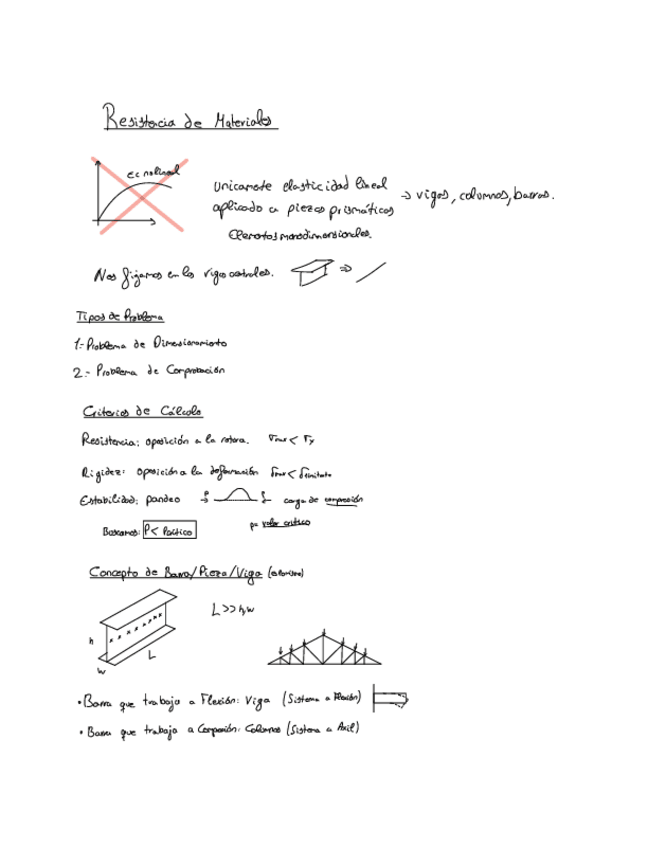 Resistencia de Materiales
ec no lineal
Unicamente elasticidad lineal
aplicado a piezas prismáticas
→ vigas, columnas, barras.
Elementos monodimensionales.
Nos fijamos en las vigas centrales. ⇒
Tipos de Problema
1.- Problema de Dimensionamiento
2.- Problema de Comprobación
Criterios de Cálculo
Resistencia: oposición a la rotura. σmax < σy
Rigidez: oposición a la deformación δmax < δlimitante
Estabilidad: pandeo P carga de compresión
Buscamos: P < Pcritico p = valor critico
Concepto de Barra/Pieza/Viga
L >> h, w
h
w
L
• Barra que trabaja a Flexión: Viga (Sistema a Flexión)
• Barra que trabaja a Compresión: Columna (Sistema a Axil)